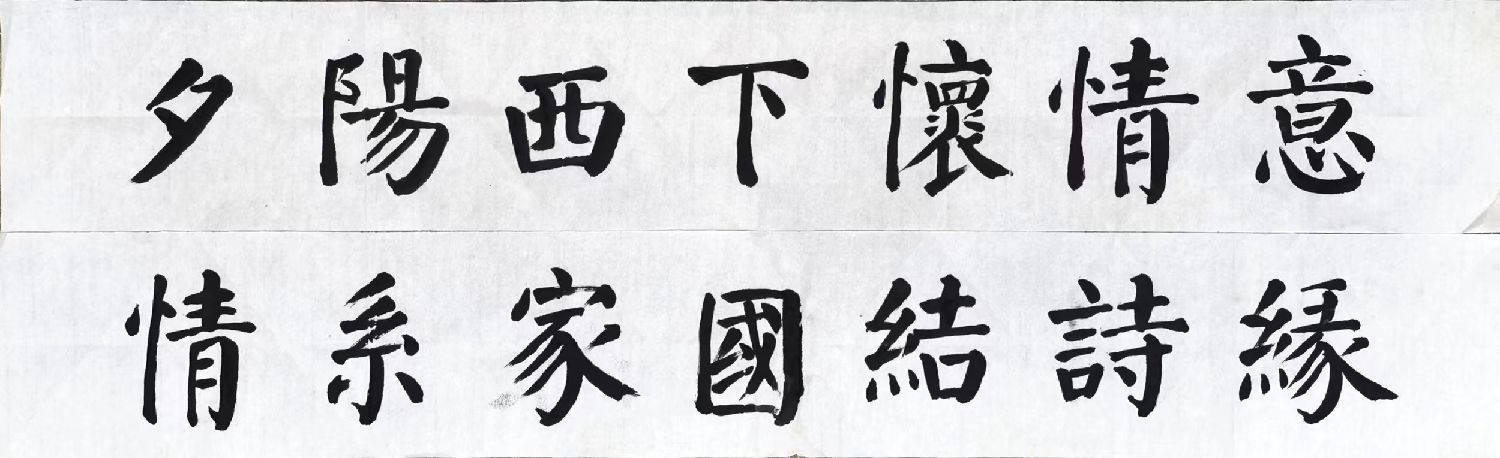 夕陽西下懷情意
情系家國結詩緣